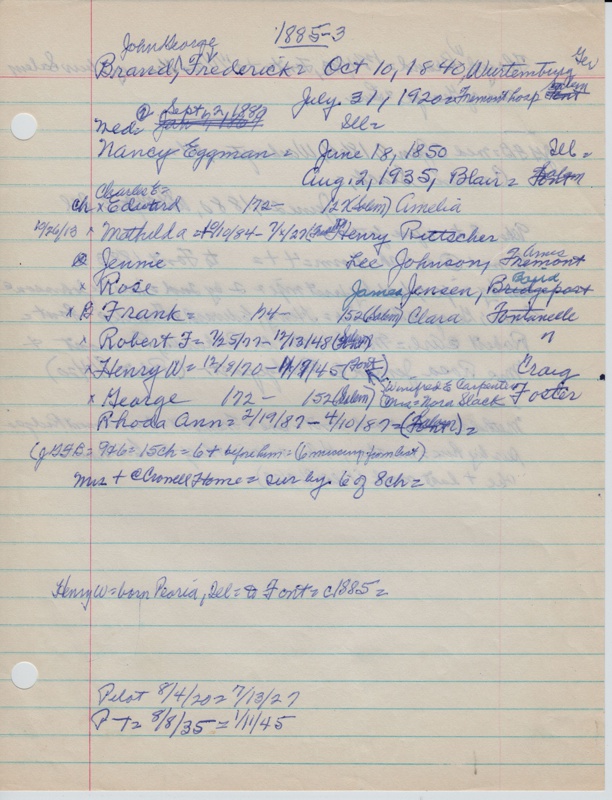 1885-3
John George
Brand, Frederick = Oct 10, 1840, Wurtemburg Ger
July 31, 1920 = Fremont hosp Salem Font
@ Sept, 2, 1880
Wed = Ill =
Nancy Eggman = June 18, 1850 Ill =
Aug. 2, 1935, Blair = Salem Font
Charles E =
ch x Edward 172- (Salem) Amelia
x Mathilda = 10/10/84- 7/4/27 Henry Ruttscher
Jennie Lee Johnson, Ames Fremont
x Rose James Jensen, Bridgeport
x B Frank = 74- 152 (Salem) Clara Fontanelle
x Robert F = 7/25/77- 12/13/48 (Salem) "
x Henry W = 12/8/70- 11/7/45 (Font) Craig
Winifred E Carpenter
x George 172- 152 (Salem) Mrs = Nora Slack Foster
Rhoda Ann = 2/19/87- 4/10/87 = (Salem Font) =
(g GSB = 976 = 15ch = 6 + by prelim = (6 missing from list)
Mrs + Crowell Home = sur by. 6 of 8ch =
Henry W = born Peoria, Ill = to Font = c1885 =
Pilot 8/4/20 = 7/13/27
P-T = 8/8/35 = 1/11/45